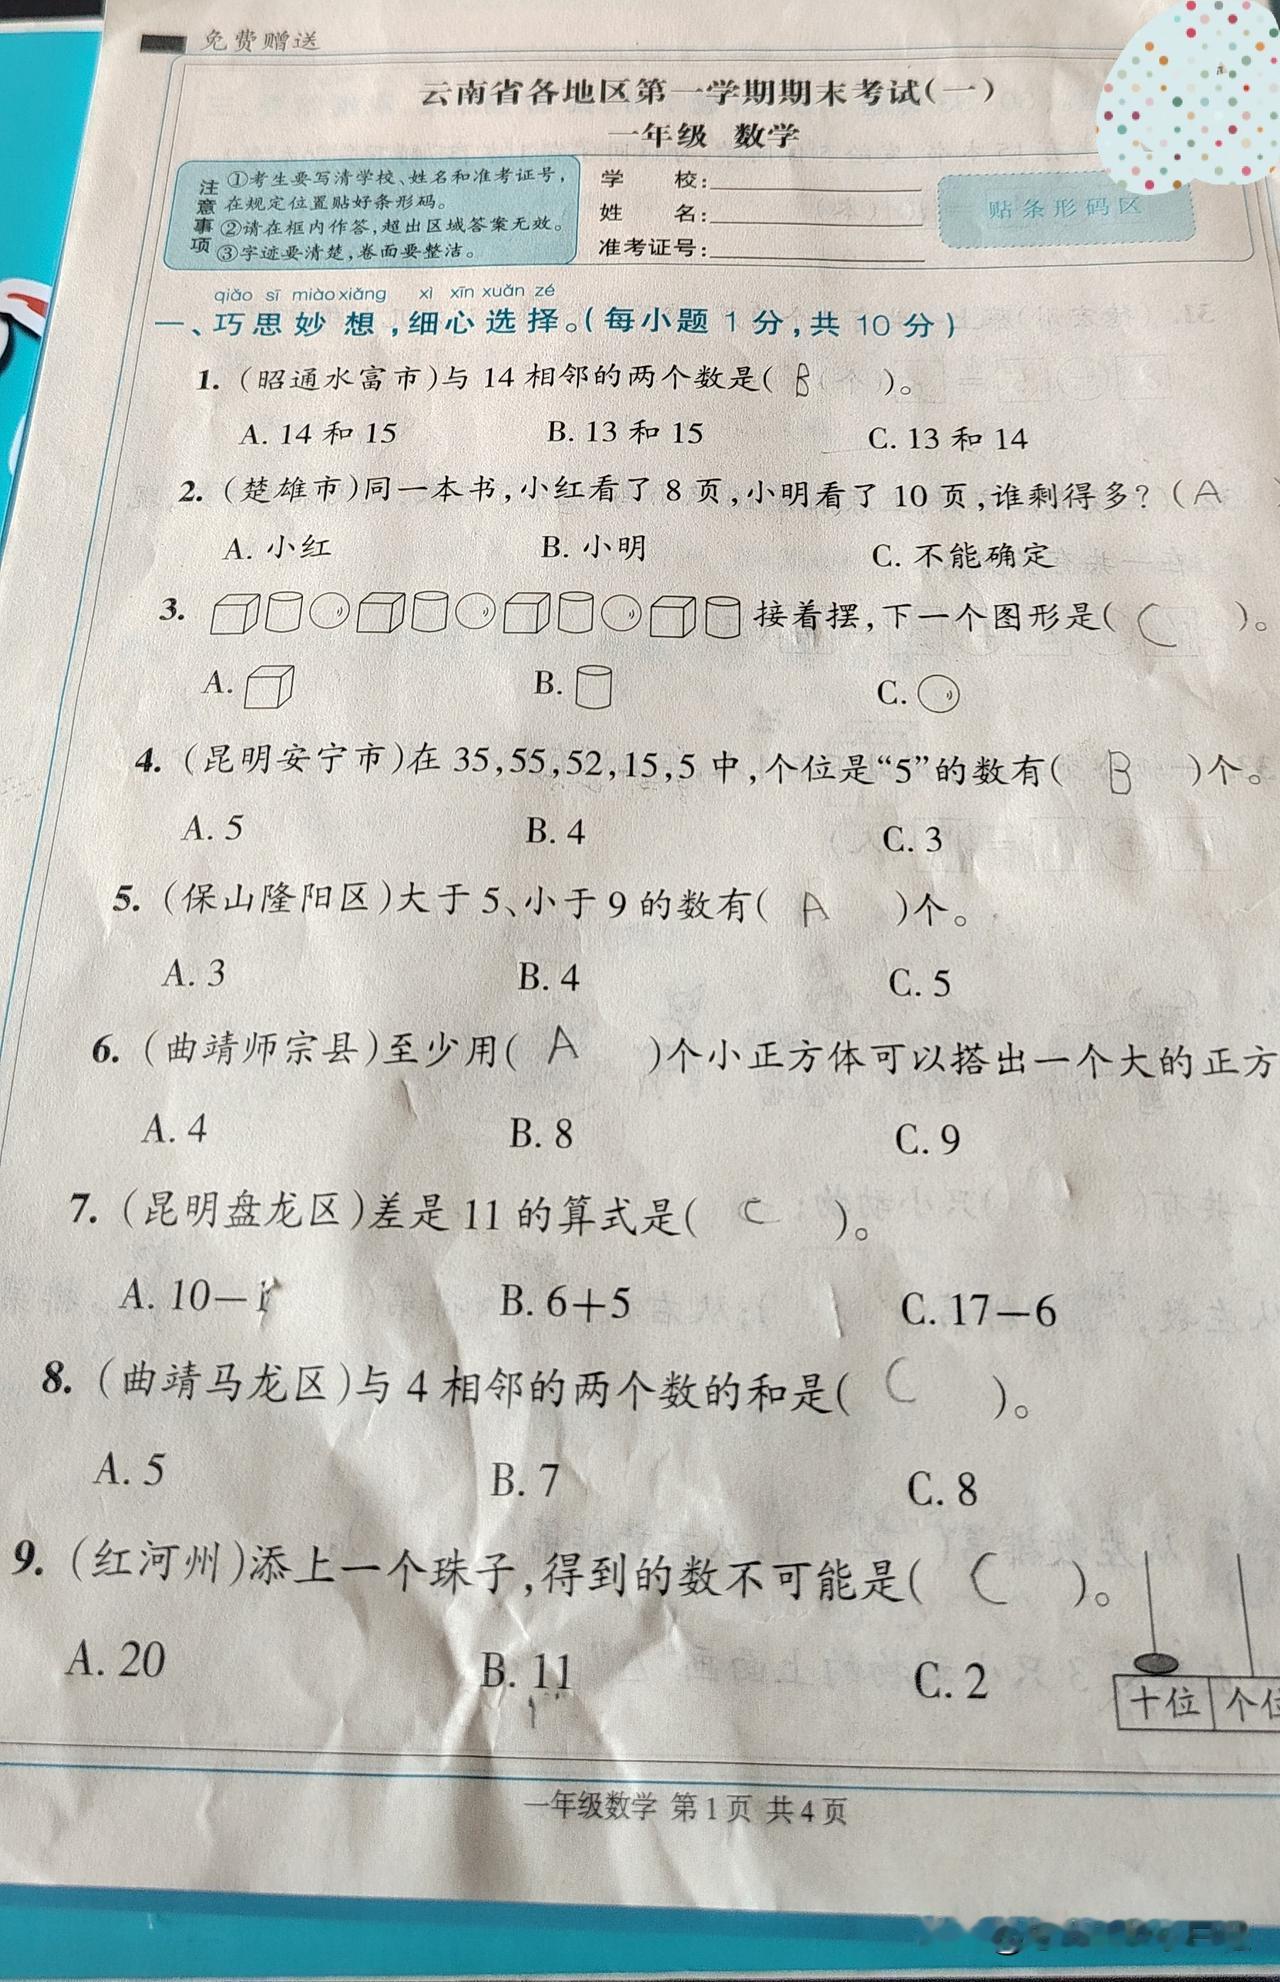 免费赠送
云南省各地区第一学期期末考试(一)
一年级 数学
注意事项
①考生要写清学校、姓名和准考证号,
在规定位置贴好条形码。
②请在框内作答,超出区域答案无效。
③字迹要清楚,卷面要整洁。
学 校:
姓 名:
准考证号:
贴条形码区
qiǎo sī miào xiǎng xì xīn xuǎn zé
一、巧思妙想,细心选择。(每小题1分,共10分)
1. (昭通水富市)与14相邻的两个数是( B )。
A. 14和15 B. 13和15 C. 13和14
2. (楚雄市)同一本书,小红看了8页,小明看了10页,谁剩得多?( A
A. 小红 B. 小明 C. 不能确定
3. 接着摆,下一个图形是( C )。
A. B. C.
4. (昆明安宁市)在35,55,52,15,5中,个位是“5”的数有( B )个。
A. 5 B. 4 C. 3
5. (保山隆阳区)大于5、小于9的数有( A )个。
A. 3 B. 4 C. 5
6. (曲靖师宗县)至少用( A )个小正方体可以搭出一个大的正方
A. 4 B. 8 C. 9
7. (昆明盘龙区)差是11的算式是( C )。
A. 10−1 B. 6+5 C. 17−6
8. (曲靖马龙区)与4相邻的两个数的和是( C )。
A. 5 B. 7 C. 8
9. (红河州)添上一个珠子,得到的数不可能是( C )。
A. 20 B. 11 C. 2
十位 个位
一年级数学 第1页 共4页